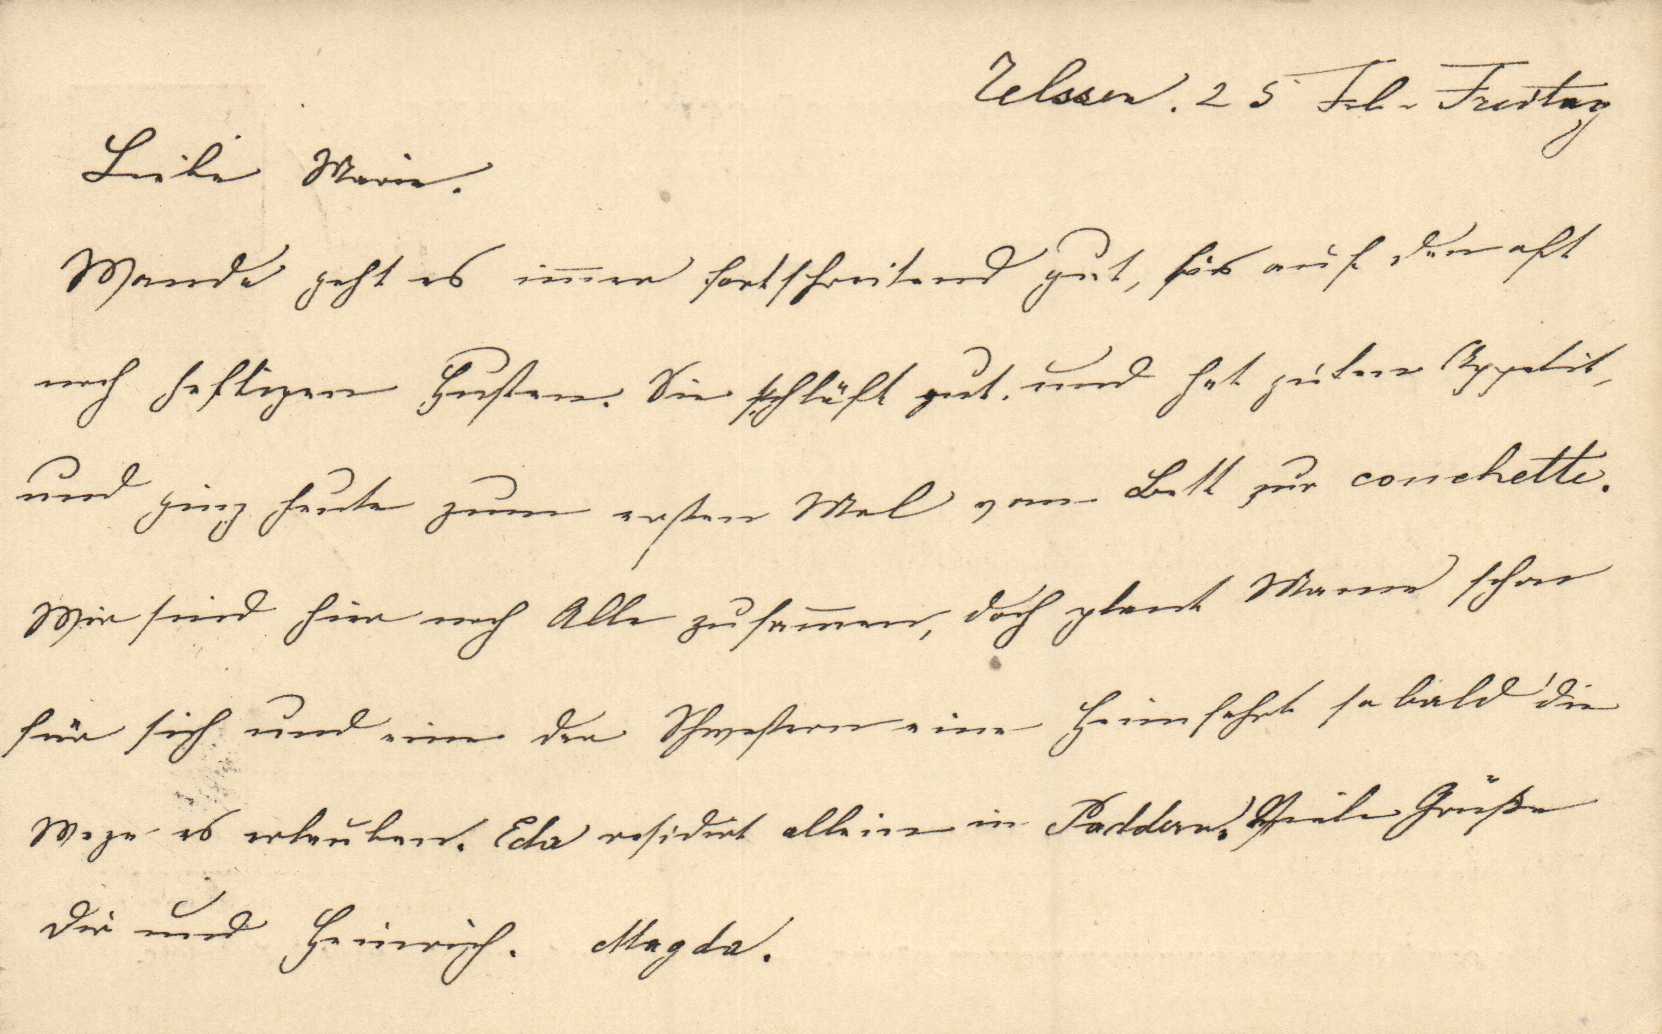 Telssen. 25 Feb. Freitag
Liebe Marie.
Wanda geht es im̅er fortschreitend gut, bis auf den oft
noch heftigen Husten. Sie schläft gut. und hat guten Appetit,
und ging heute zum ersten Mal vom Bett zur couchette.
Wir sind hier noch Alle zusam̅en, doch plant Mama schon
für sich und eine der Schwestern eine Heimfahrt sobald die
Wege es erlauben. Eda residirt allein in Paddern. Viele Grüße
Dir und Heinrich. Magda.